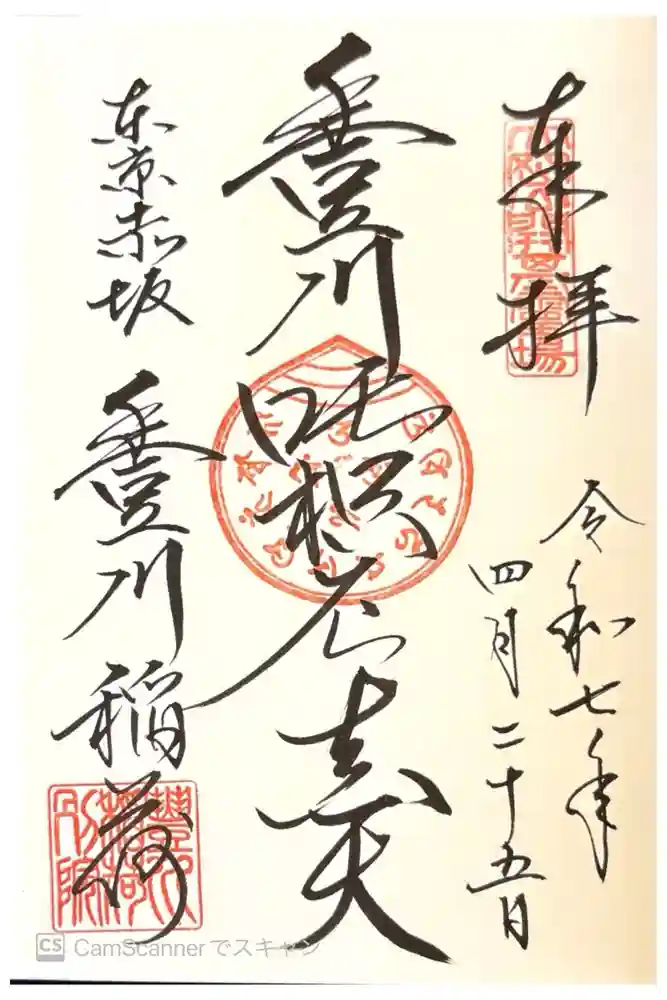 奉拝
令和七年
四月二十五日
豊川吒枳尼真天
東京赤坂
豊川稲荷
CS CamScannerでスキャン